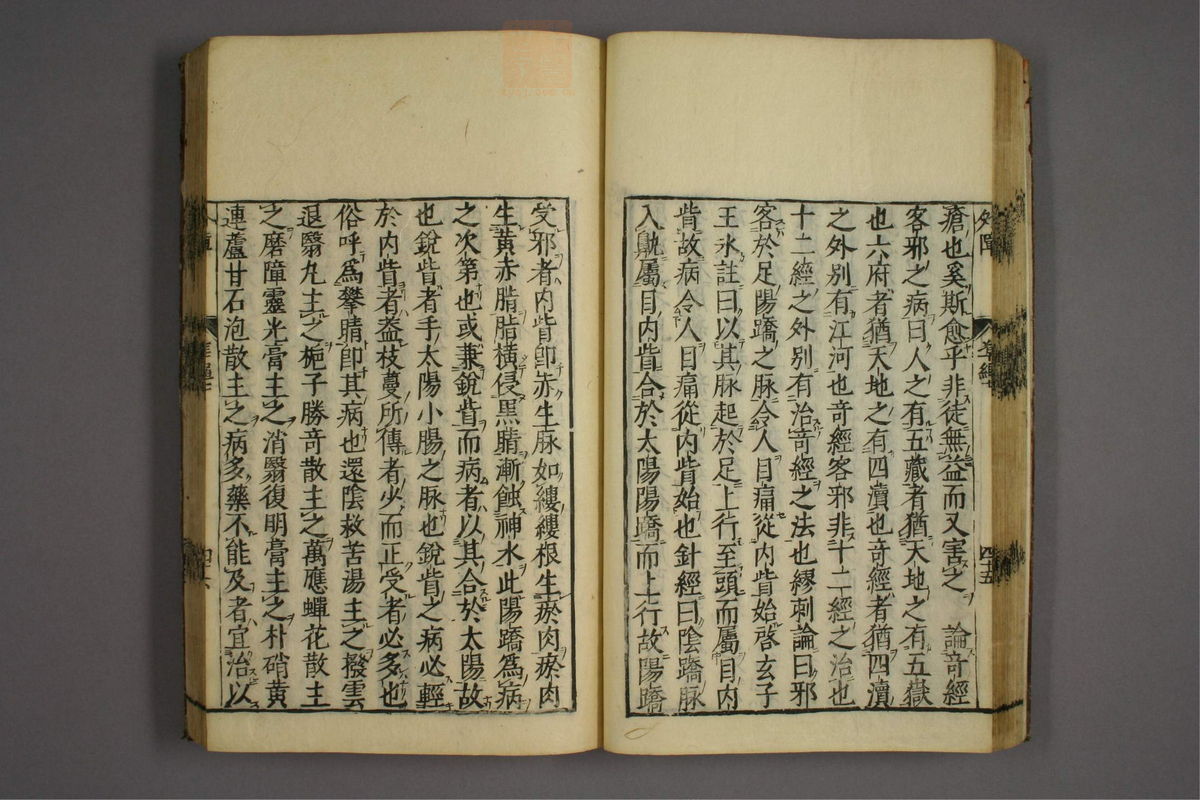 瘡也奚斯愈乎非徒無益而又害之　論奇經
客邪之病曰人之有五藏者猶天地之有五嶽
也六府者猶天地之有四瀆也奇經者猶四瀆
之外別有江河也奇經客邪非十二經之治也
十二經之外別有治奇經之法也繆刺論曰邪
客於足陽蹻之脉令人目痛從内眥始啓玄子
王氷註曰以其脉起於足上行至頭而屬目内
眥故病令人目痛從内眥始也針經曰陰蹻脉
入鼽屬目内眥合於太陽陽蹻而上行故陽蹻
受邪者内眥即赤生脉如縷縷根生瘀肉瘀肉
生黃赤脂脂橫侵黒睛漸蝕神水此陽蹻爲病
之次第也或兼銳眥而病者以其合於太陽故
也銳眥者手太陽小腸之脉也銳眥之病必輕
於内眥者蓋枝蔓所傳者少而正受者必多也
俗呼爲攀睛即其病也還陰救苦湯主之撥雲
退翳丸主之梔子勝奇散主之萬應蟬花散主
之磨障靈光膏主之消翳復明膏主之朴硝黃
連蘆甘石泡散主之病多藥不能及者宜治以